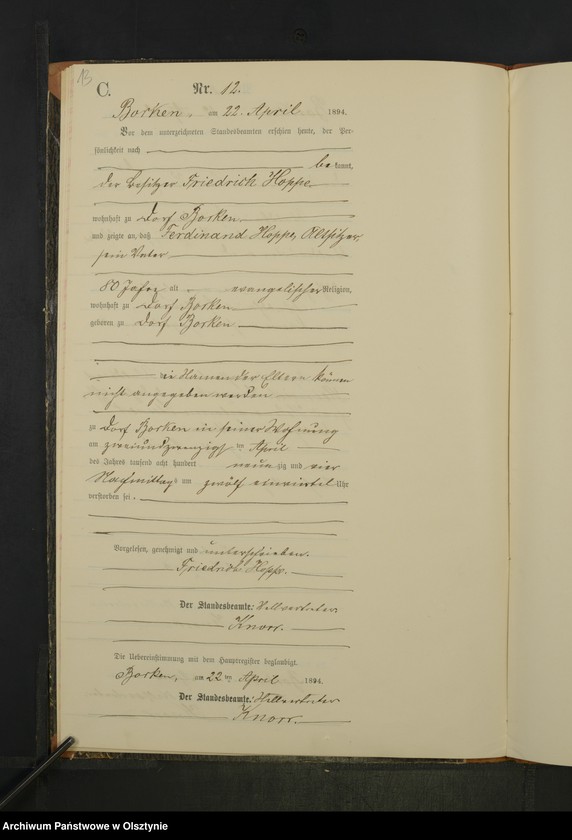 13
C.
Nr. 12.
Borken, am 22. April 1894.
Vor dem unterzeichneten Standesbeamten erschien heute, der Per-
sönlichkeit nach
bekannt,
der Besitzer Friedrich Hoppe
wohnhaft zu Dorf Borken
und zeigte an, daß Ferdinand Hoppe, Altsitzer,
sein Vater
80 Jahre alt evangelischer Religion,
wohnhaft zu Dorf Borken
geboren zu Dorf Borken
die Namen der Eltern können
nicht angegeben werden
zu Dorf Borken in seiner Wohnung
am zweiundzwanzigsten April
des Jahres tausend acht hundert neunzig und vier
Nachmittags um zwölf einviertel Uhr
verstorben sei.
Vorgelesen, genehmigt und unterschrieben.
Friedrich Hoppe.
Der Standesbeamte: Stellvertreter
Knorr.
Die Uebereinstimmung mit dem Hauptregister beglaubigt.
Borken, am 22ten April 1894.
Der Standesbeamte: Stellvertreter
Knorr.
Archiwum Państwowe w Olsztynie